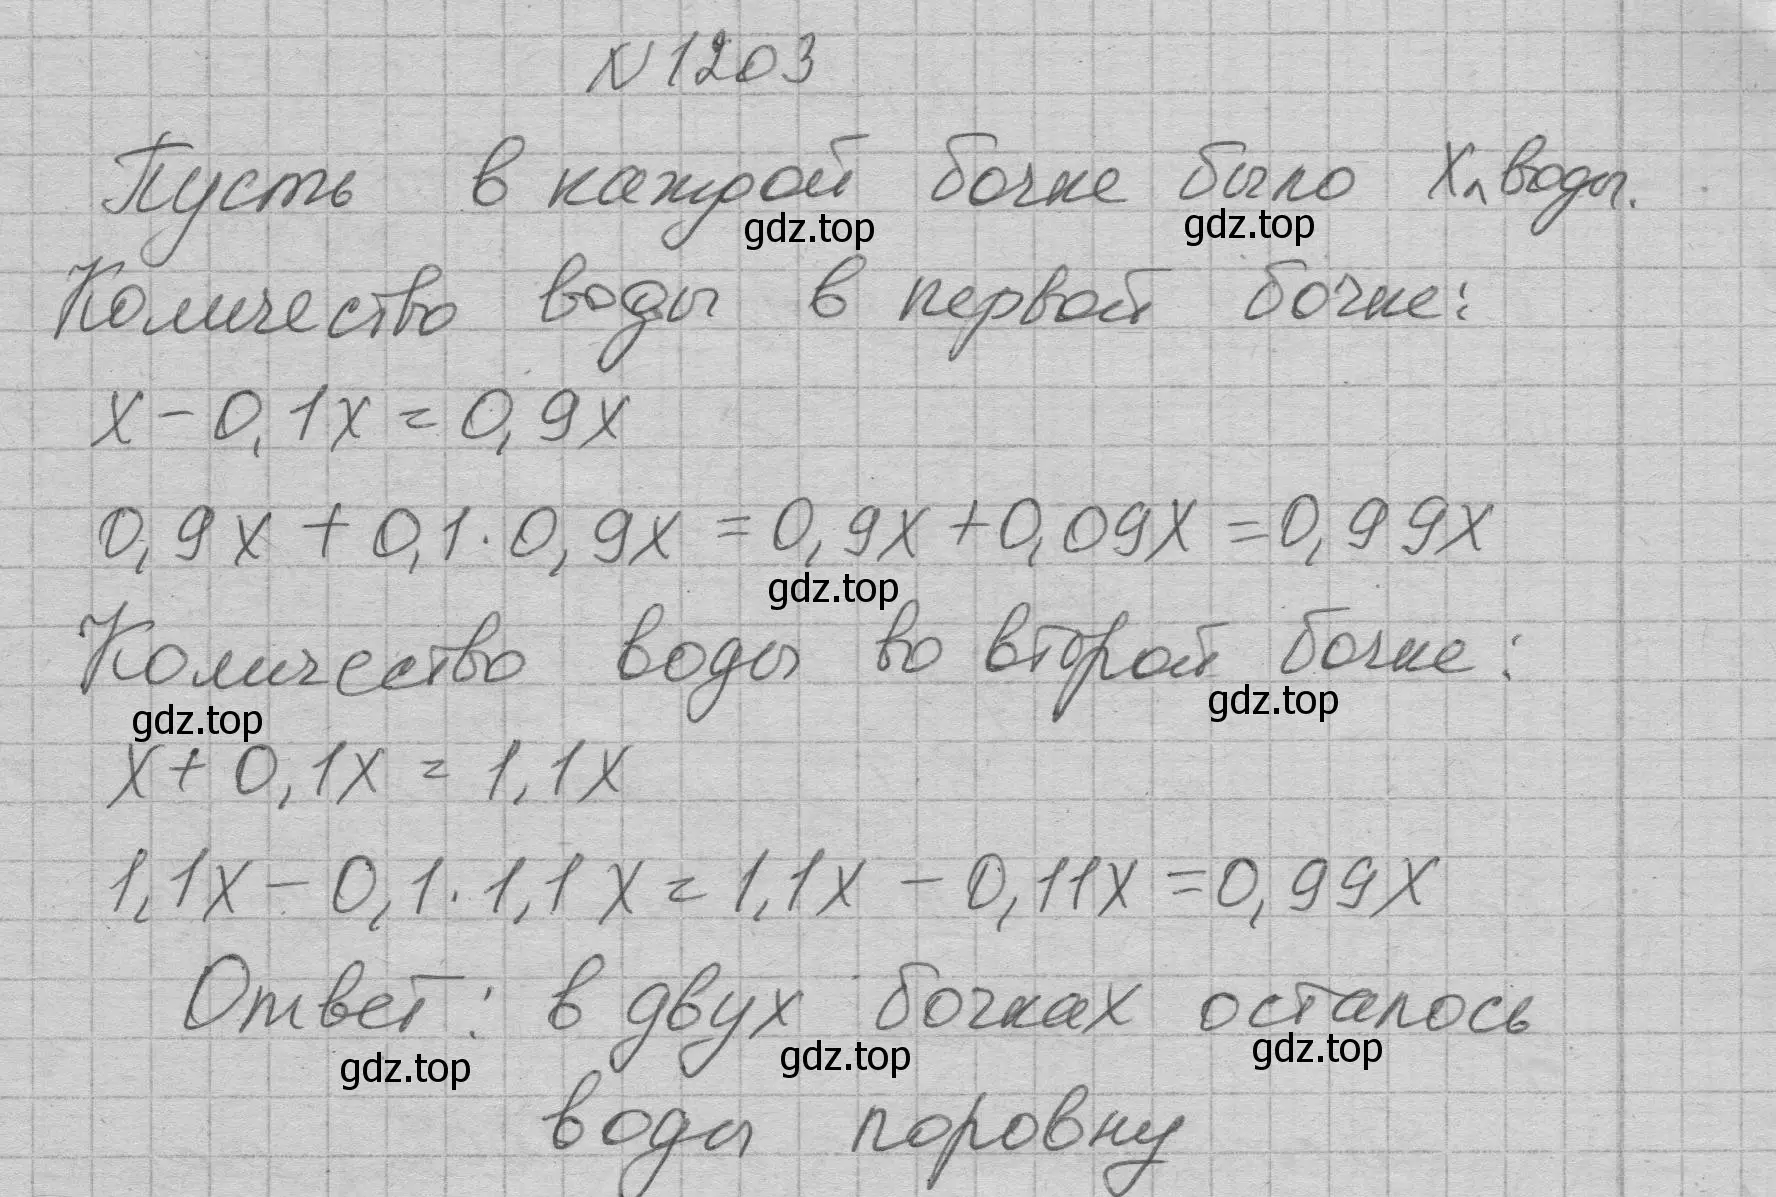 N 1203
Пусть в каждой бочке было x л воды.
gdz.top gdz.top
Количество воды в первой бочке:
x - 0,1x = 0,9x
0,9x + 0,1 · 0,9x = 0,9x + 0,09x = 0,99x
gdz.top
Количество воды во второй бочке:
gdz.top gdz.top
x + 0,1x = 1,1x
1,1x - 0,1 · 1,1x = 1,1x - 0,11x = 0,99x
Ответ: в двух бочках осталось
gdz.top gdz.top gdz.top
воды поровну